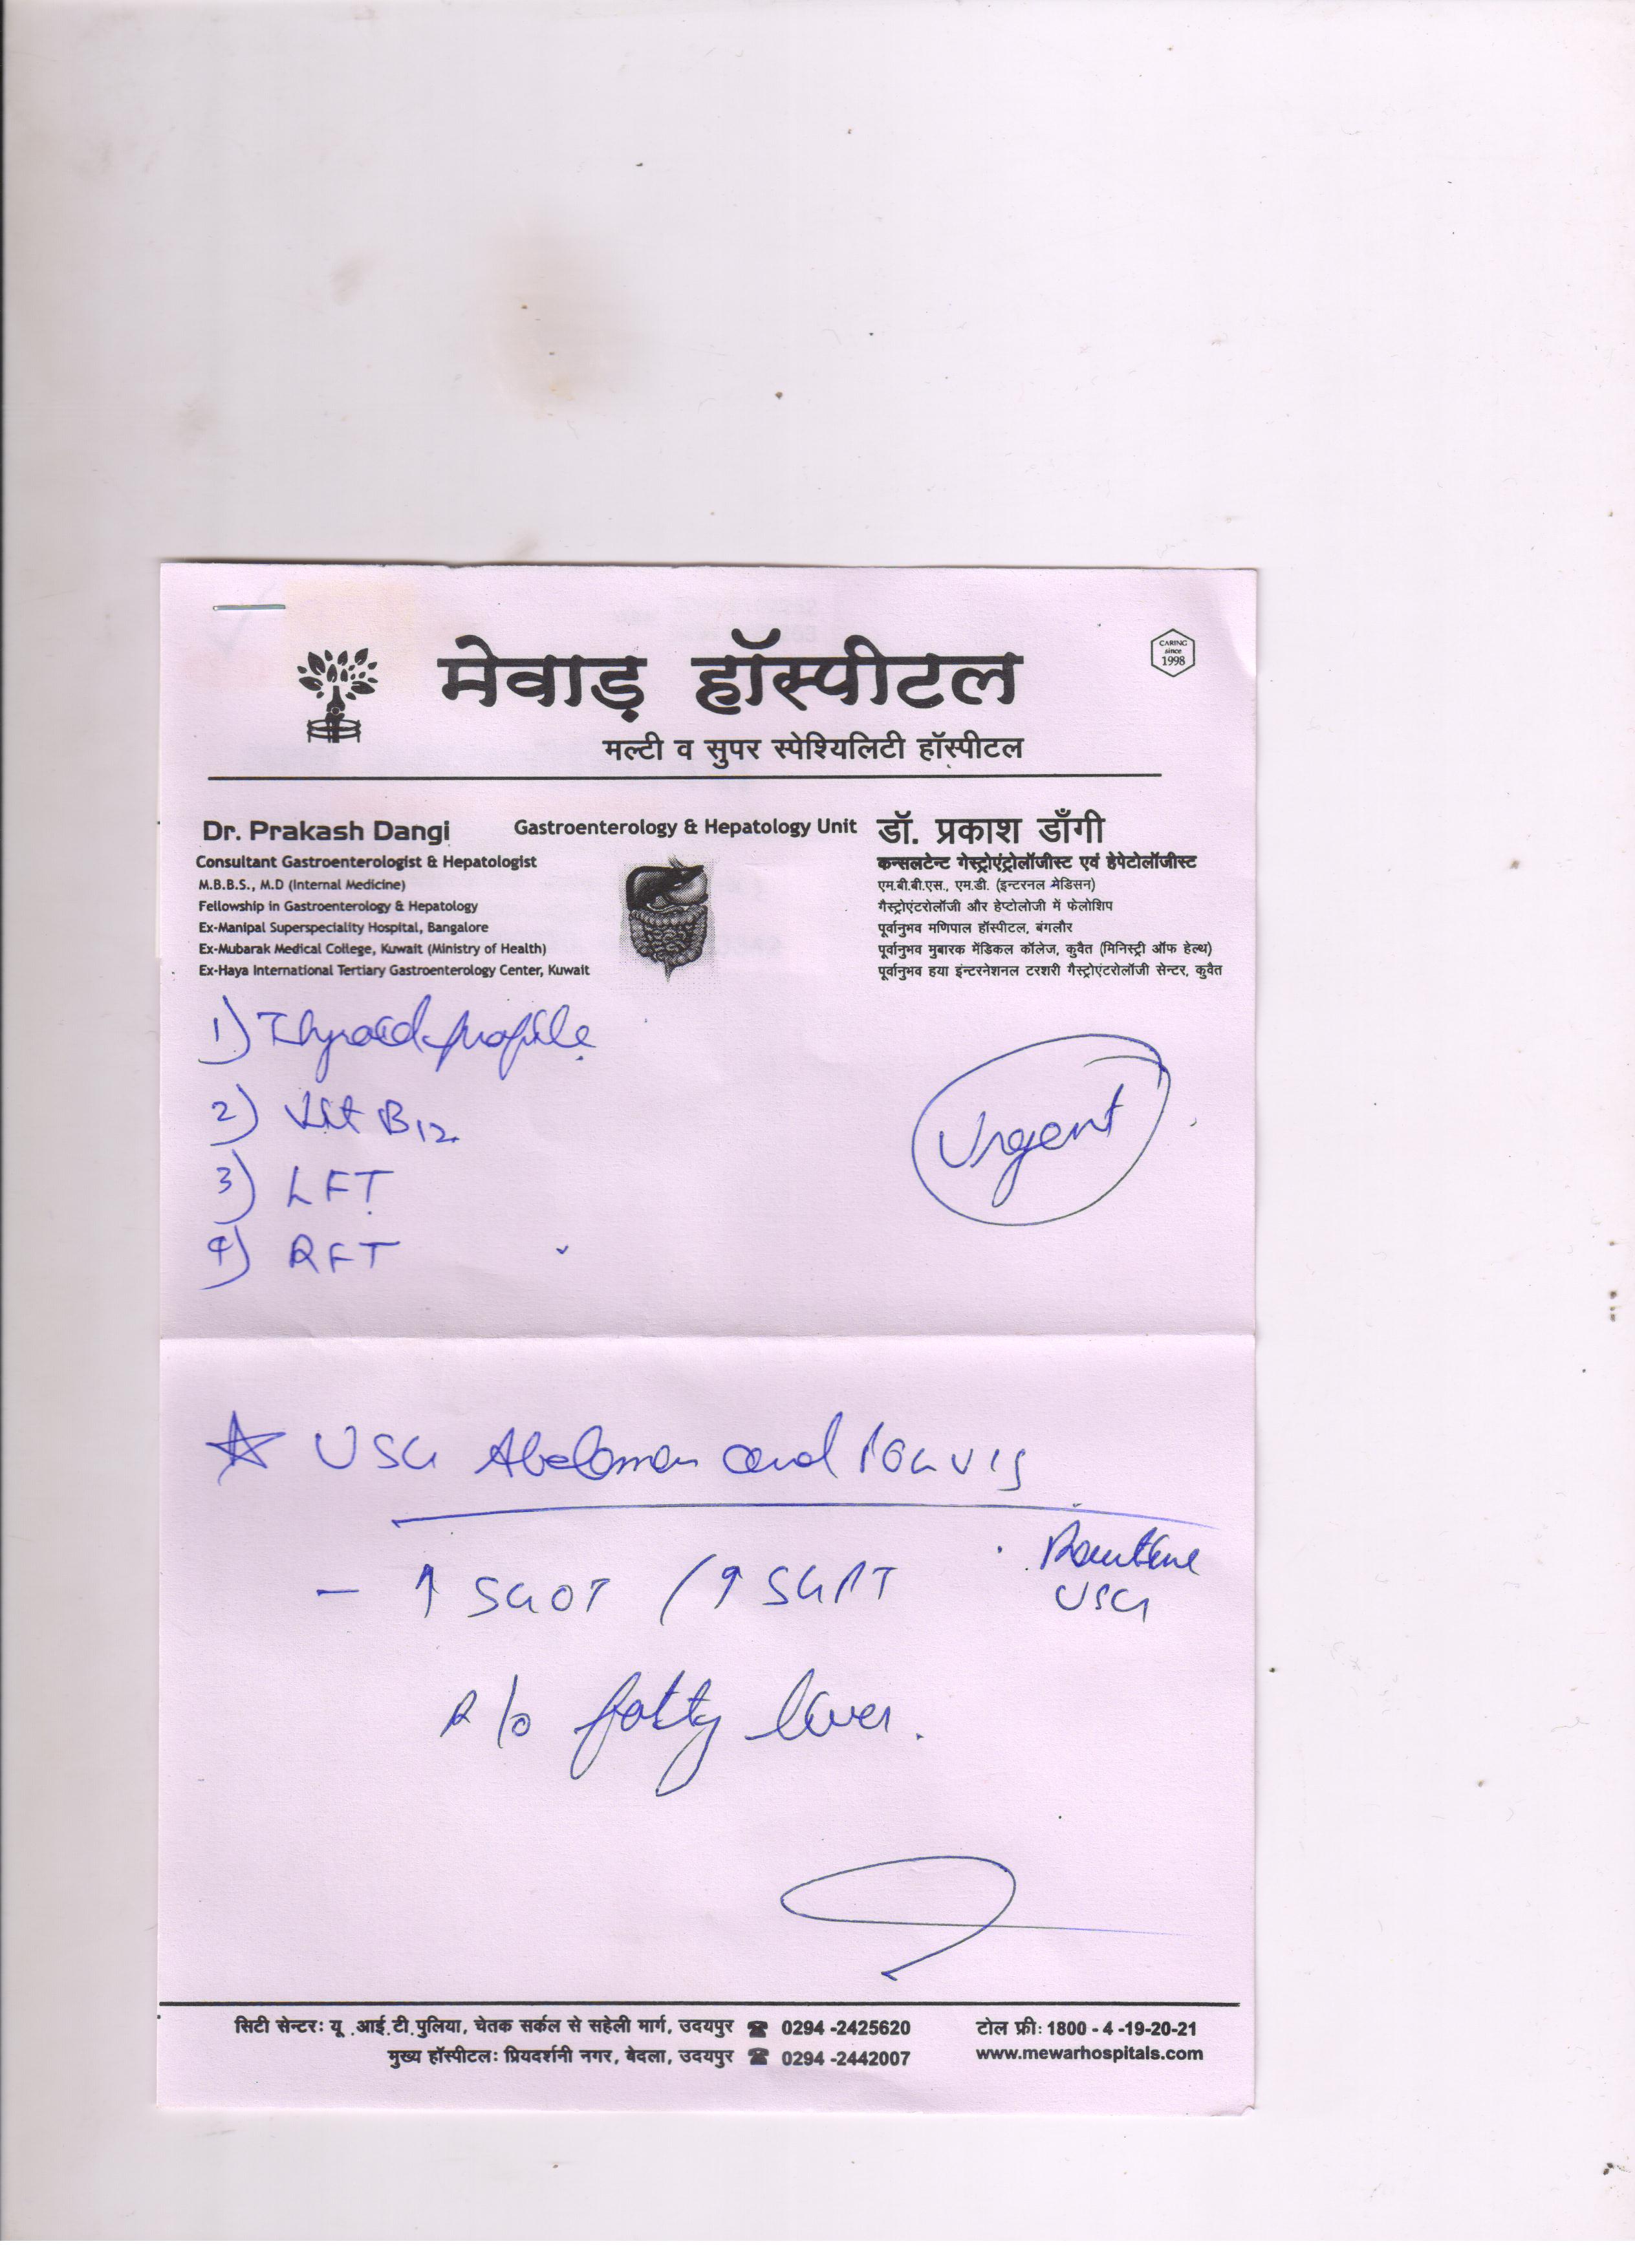 मेवाड़ हॉस्पीटल
CARING
since
1998
मल्टी व सुपर स्पेश्यिलिटी हॉस्पीटल
Dr. Prakash Dangi
Consultant Gastroenterologist & Hepatologist
M.B.B.S., M.D (Internal Medicine)
Fellowship in Gastroenterology & Hepatology
Ex-Manipal Superspeciality Hospital, Bangalore
Ex-Mubarak Medical College, Kuwait (Ministry of Health)
Ex-Haya International Tertiary Gastroenterology Center, Kuwait
Gastroenterology & Hepatology Unit
डॉ. प्रकाश डाँगी
कन्सलटेन्ट गेस्ट्रोएंट्रोलॉजीस्ट एवं हेपेटोलॉजीस्ट
एम.बी.बी.एस., एम.डी. (इन्टरनल मेडिसन)
गैस्ट्रोएंटरोलॉजी और हेप्टोलोजी में फेलोशिप
पूर्वानुभव मणिपाल हॉस्पीटल, बंगलौर
पूर्वानुभव मुबारक मेंडिकल कॉलेज, कुवैत (मिनिस्ट्री ऑफ हेल्थ)
पूर्वानुभव हया इंन्टरनेशनल टरशरी गैस्ट्रोएंटरोलॉजी सेन्टर, कुवैत
1) Thyroid profile
2) Vit B12
3) LFT
4) RFT
Urgent
☆ USG Abdomen and Pelvis
- ↑ SGOT / ↑ SGPT
Routine
USG
R/o fatty liver.
सिटी सेन्टरः यू .आई.टी.पुलिया, चेतक सर्कल से सहेली मार्ग, उदयपुर ☎ 0294 -2425620
टोल फ्रीः 1800 - 4 -19-20-21
मुख्य हॉस्पीटलः प्रियदर्शनी नगर, बेदला, उदयपुर ☎ 0294 -2442007
www.mewarhospitals.com